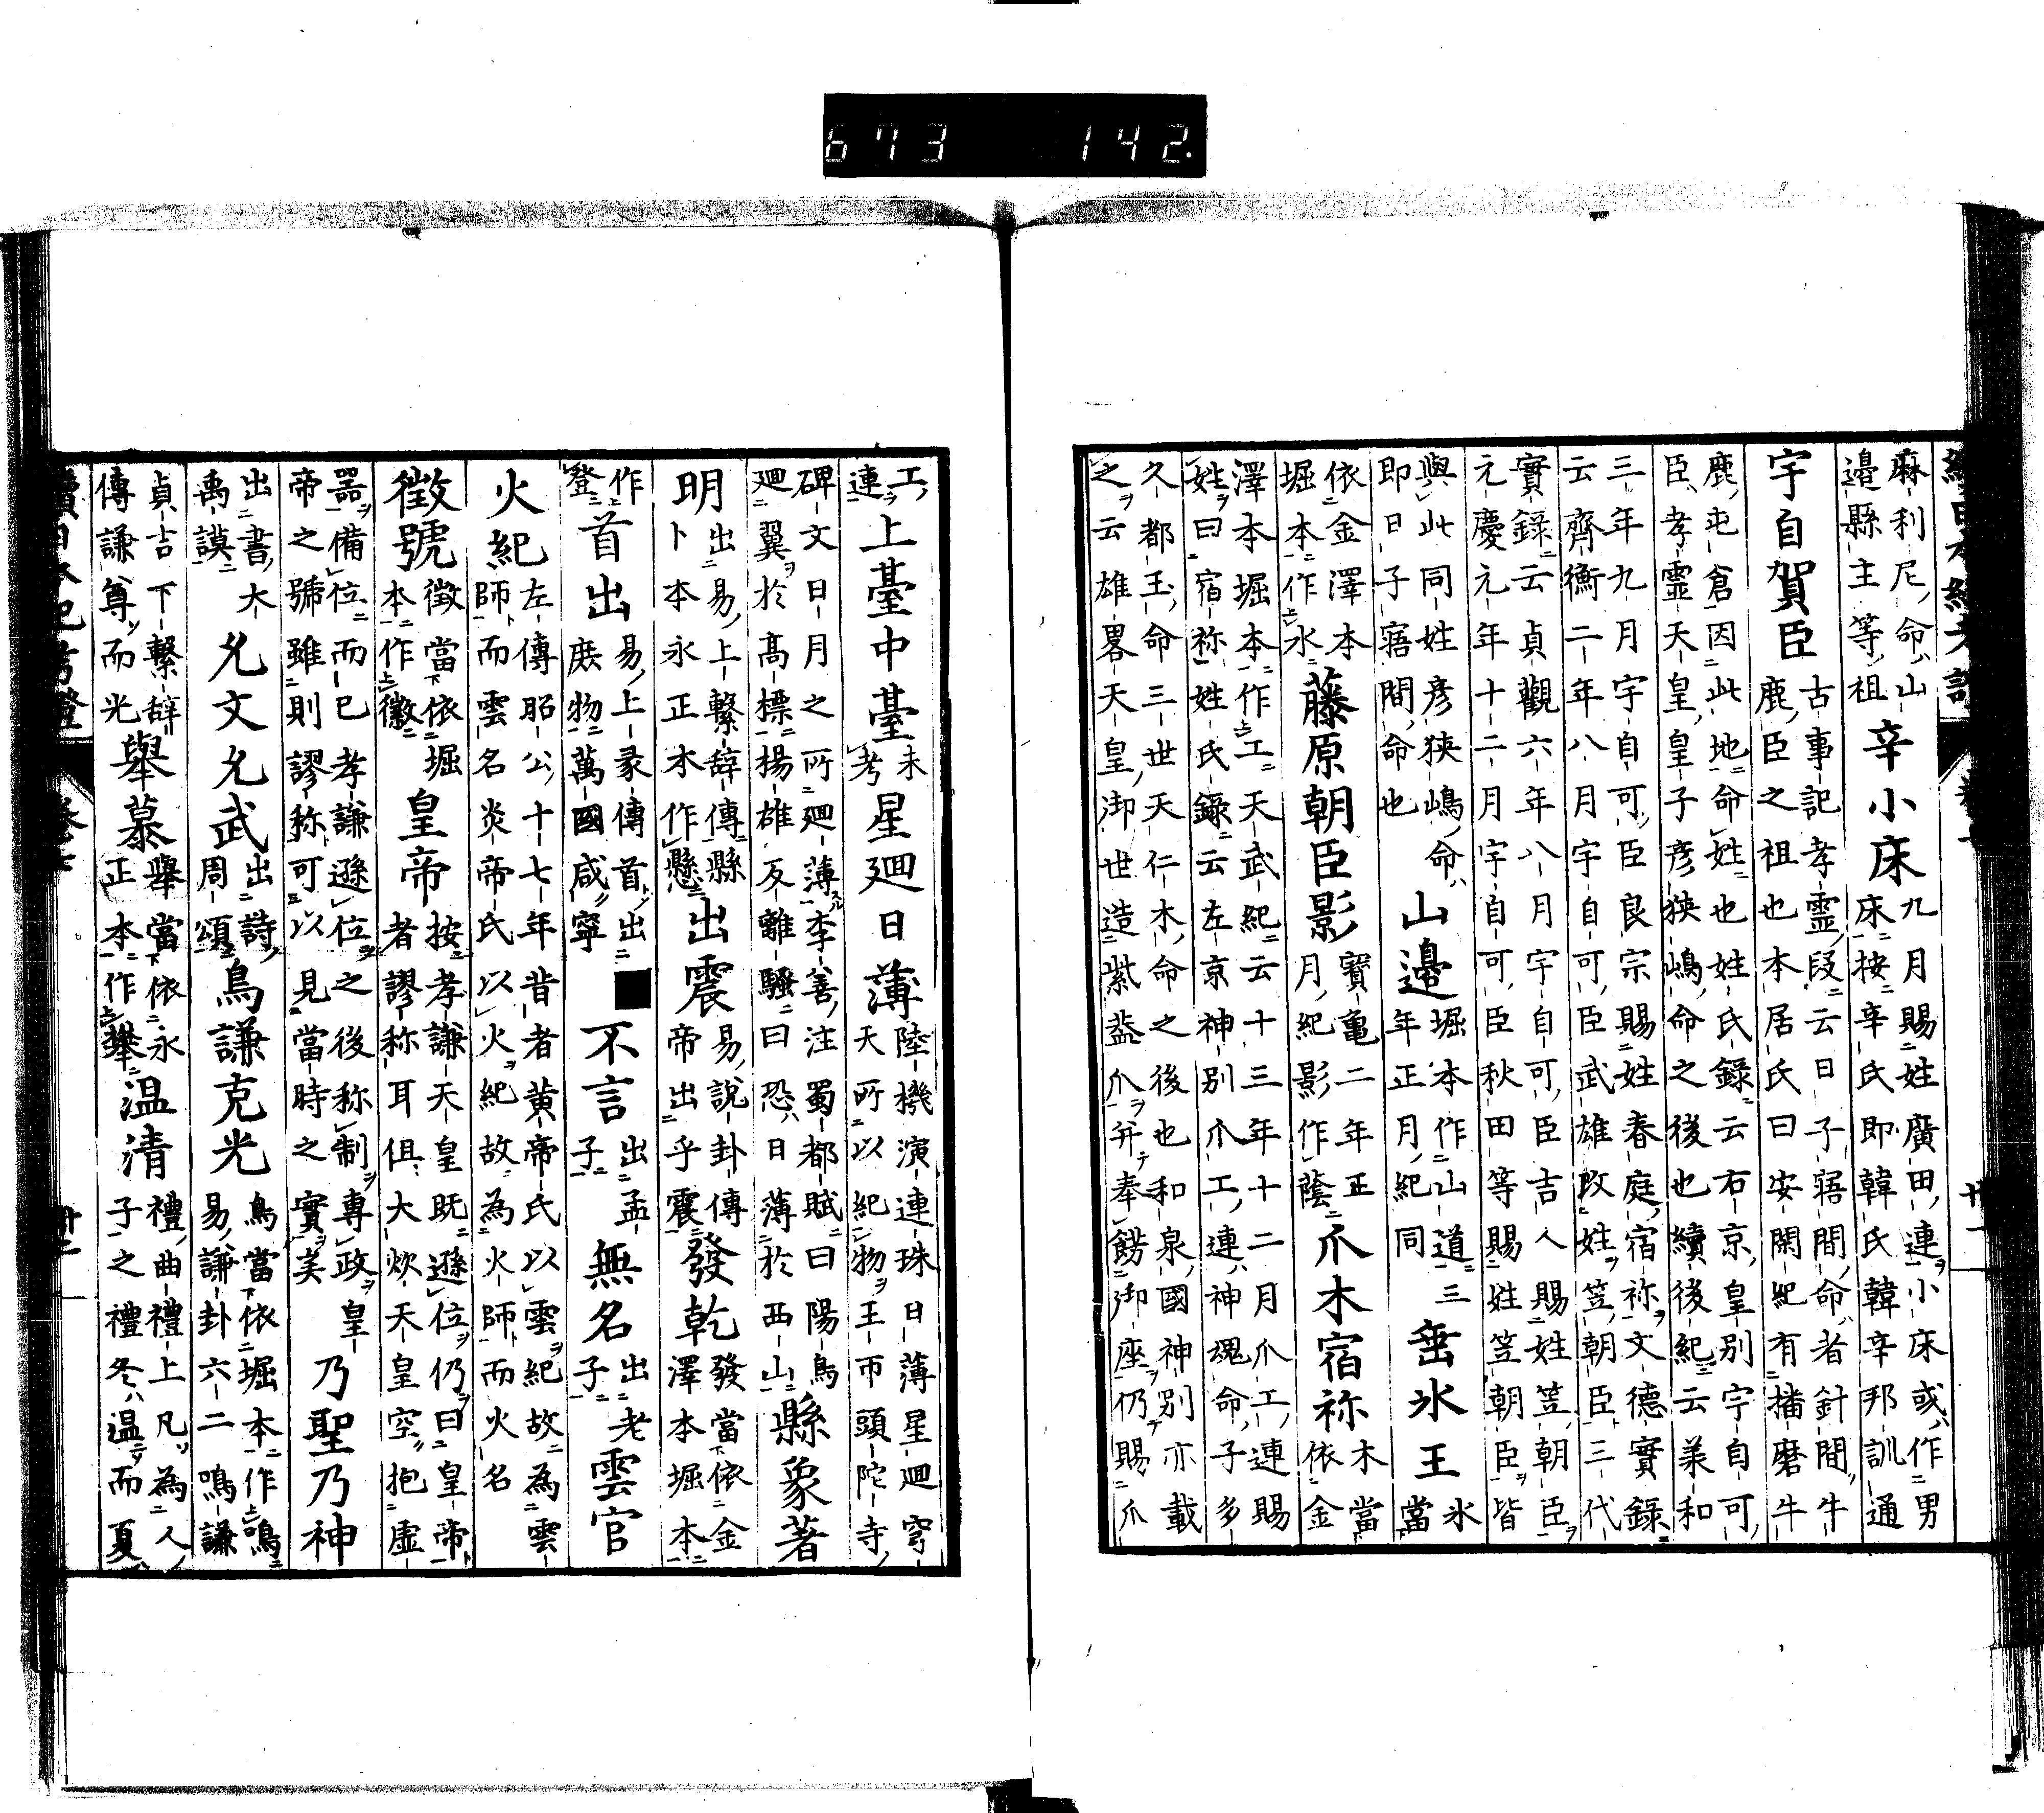 麻利尼命山
邉縣主等祖
辛小床
九月賜姓廣田連小床或作男
床按辛氏即韓氏韓辛邦訓通
宇自賀臣
古事記孝霊段云日子寤間命者針間牛
鹿臣之祖也本居氏曰安閑紀有播磨牛
鹿屯倉因此地命姓也姓氏録云右京皇別宇自可
臣孝霊天皇皇子彦狹嶋命之後也續後紀云羕和
三年九月宇自可臣良宗賜姓春庭宿祢文德實錄
云齊衡二年八月宇自可臣武雄改姓笠朝臣三代
實錄云貞觀六年八月宇自可臣吉人賜姓笠朝臣
元慶元年十二月宇自可臣秋田等賜姓笠朝臣皆
與此同姓彦狹嶋命
即日子寤間命也
山邉
堀本作山道三
年正月紀同
埀氷王
氷
當
依金澤本
堀本作氷
藤原朝臣影
寶亀二年正
月紀影作蔭
爪木宿祢
木當
依金
澤本堀本作工天武紀云十三年十二月爪工連賜
姓曰宿祢姓氏錄云左京神別爪工連神魂命子多
久都玉命三世天仁木命之後也和泉國神別亦載
之云雄畧天皇御世造紫葢爪并奉餝御座仍賜爪
工
連
上臺中臺
未
考
星廻日薄
陸機演連珠日薄星廻穹
天所以紀物王巾頭陀寺
碑文日月之所廻薄李善注蜀都賦曰陽烏
廻翼於髙標楊雄反離騷曰恐日薄於西山
縣象著
明
出易上繋辞傳縣
卜本永正本作懸
出震
易說卦傳
帝出乎震
發乾
發當依金
澤本堀本
作
登
首出
易上彖傳首出
庶物萬國咸寧
不言
出孟
子
無名
出老
子
雲官
火紀
左傳昭公十七年昔者黄帝氏以雲紀故為雲
師而雲名炎帝氏以火紀故為火師而火名
徴號
徴當依堀
本作徽
皇帝
按孝謙天皇既遜位仍曰皇帝
者謬称耳但大炊天皇空抱虚
器備位而已孝謙遜位之後称制專政皇
帝之號雖則謬称可以見當時之實矣
乃聖乃神
出書大
禹謨
允文允武
出詩
周頌
鳥謙克光
鳥當依堀本作鳴
易謙卦六二鳴謙
貞吉下繋辞
傳謙尊而光
舉慕
舉當依永
正本作攀
温清
禮曲禮上凡為人
子之禮冬温而夏
673 142.